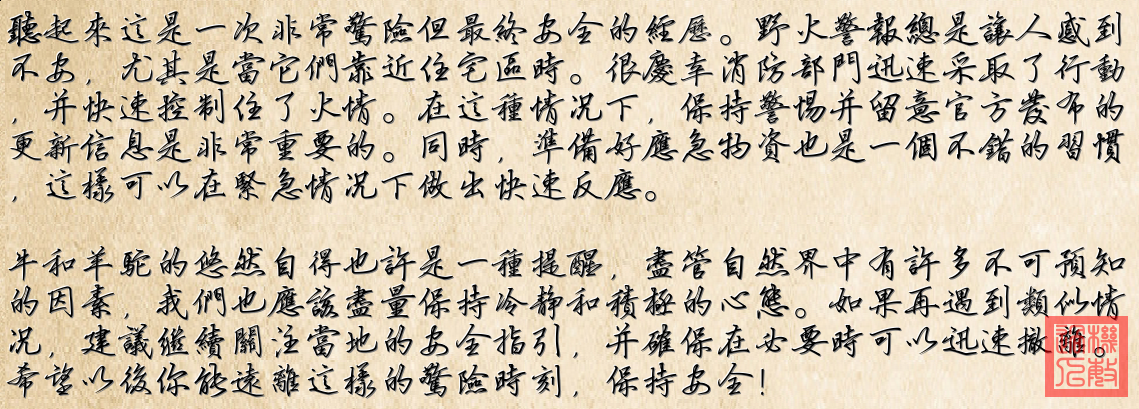 聽起來這是一次非常驚險但最終安全的經歷。野火警報總是讓人感到
不安，尤其是當它們靠近住宅區時。很慶幸消防部門迅速采取了行動
，并快速控制住了火情。在這種情况下，保持警惕并留意官方發布的
更新信息是非常重要的。同時，準備好應急物資也是一個不錯的習慣
，這樣可以在緊急情况下做出快速反應。
牛和羊駝的悠然自得也許是一種提醒，盡管自然界中有許多不可預知
的因素，我們也應該盡量保持冷靜和積極的心態。如果再遇到類似情
况，建議繼續關注當地的安全指引，并確保在必要時可以迅速撤離。
希望以後你能遠離這樣的驚險時刻，保持安全！